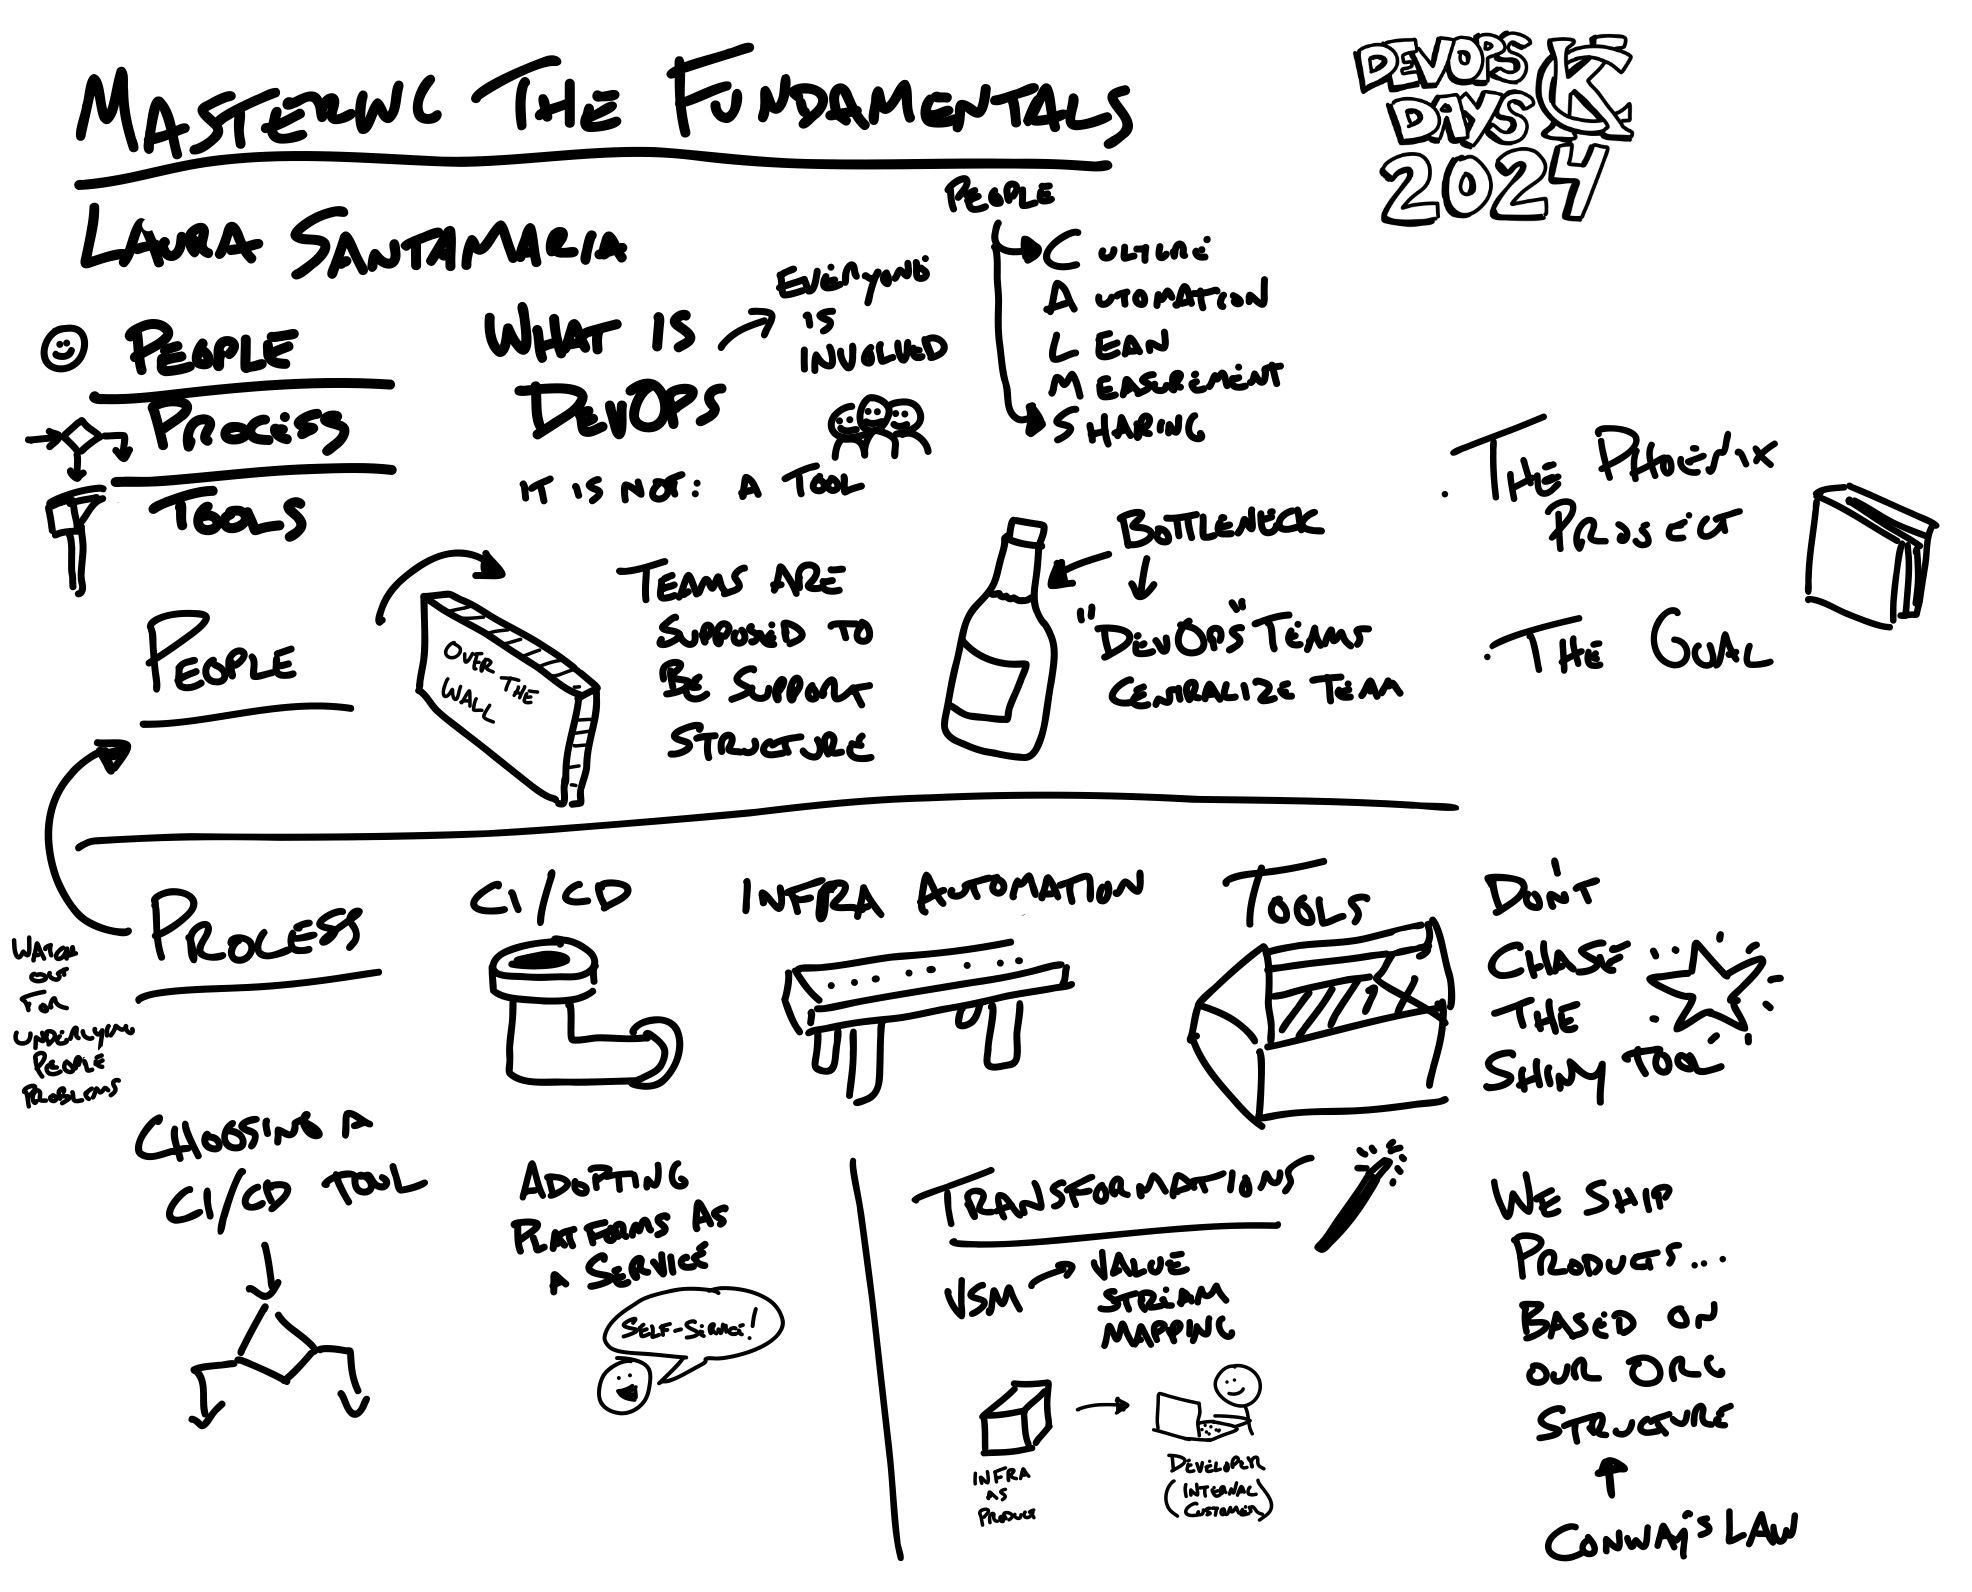 MASTERING THE FUNDAMENTALS
DEVOPS KC
DAYS
2024
LAURA SANTAMARIA
PEOPLE
PROCESS
TOOLS
WHAT IS
DEVOPS
IT IS NOT: A TOOL
EVERYONE
IS
INVOLVED
PEOPLE
CULTURE
AUTOMATION
LEAN
MEASUREMENT
SHARING
. THE PHOENIX
PROJECT
. THE GOAL
PEOPLE
OVER THE
WALL
TEAMS ARE
SUPPOSED TO
BE SUPPORT
STRUCTURE
BOTTLENECK
"DEVOPS" TEAMS
CENTRALIZE TEAM
PROCESS
WATCH
OUT
FOR
UNDERLYING
PEOPLE
PROBLEMS
CI/CD
INFRA AUTOMATION
TOOLS
DON'T
CHASE
THE
SHINY TOOL
CHOOSING A
CI/CD TOOL
ADOPTING
PLATFORMS AS
A SERVICE
SELF-SERVICE!
TRANSFORMATIONS
VSM
VALUE
STREAM
MAPPING
INFRA
AS
PRODUCT
DEVELOPER
(INTERNAL
CUSTOMER)
WE SHIP
PRODUCTS...
BASED ON
OUR ORG
STRUCTURE
CONWAY'S LAW